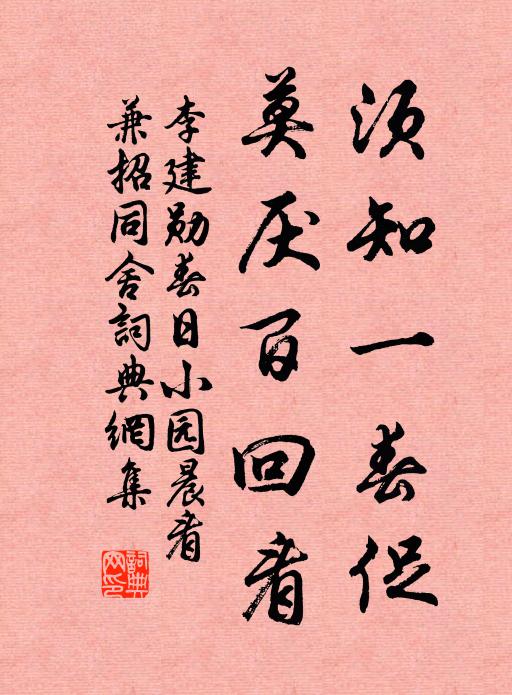 须知一春促
莫厌百回看
李建勋春日小园晨看
兼招同舍詞典網集
詞典
网印